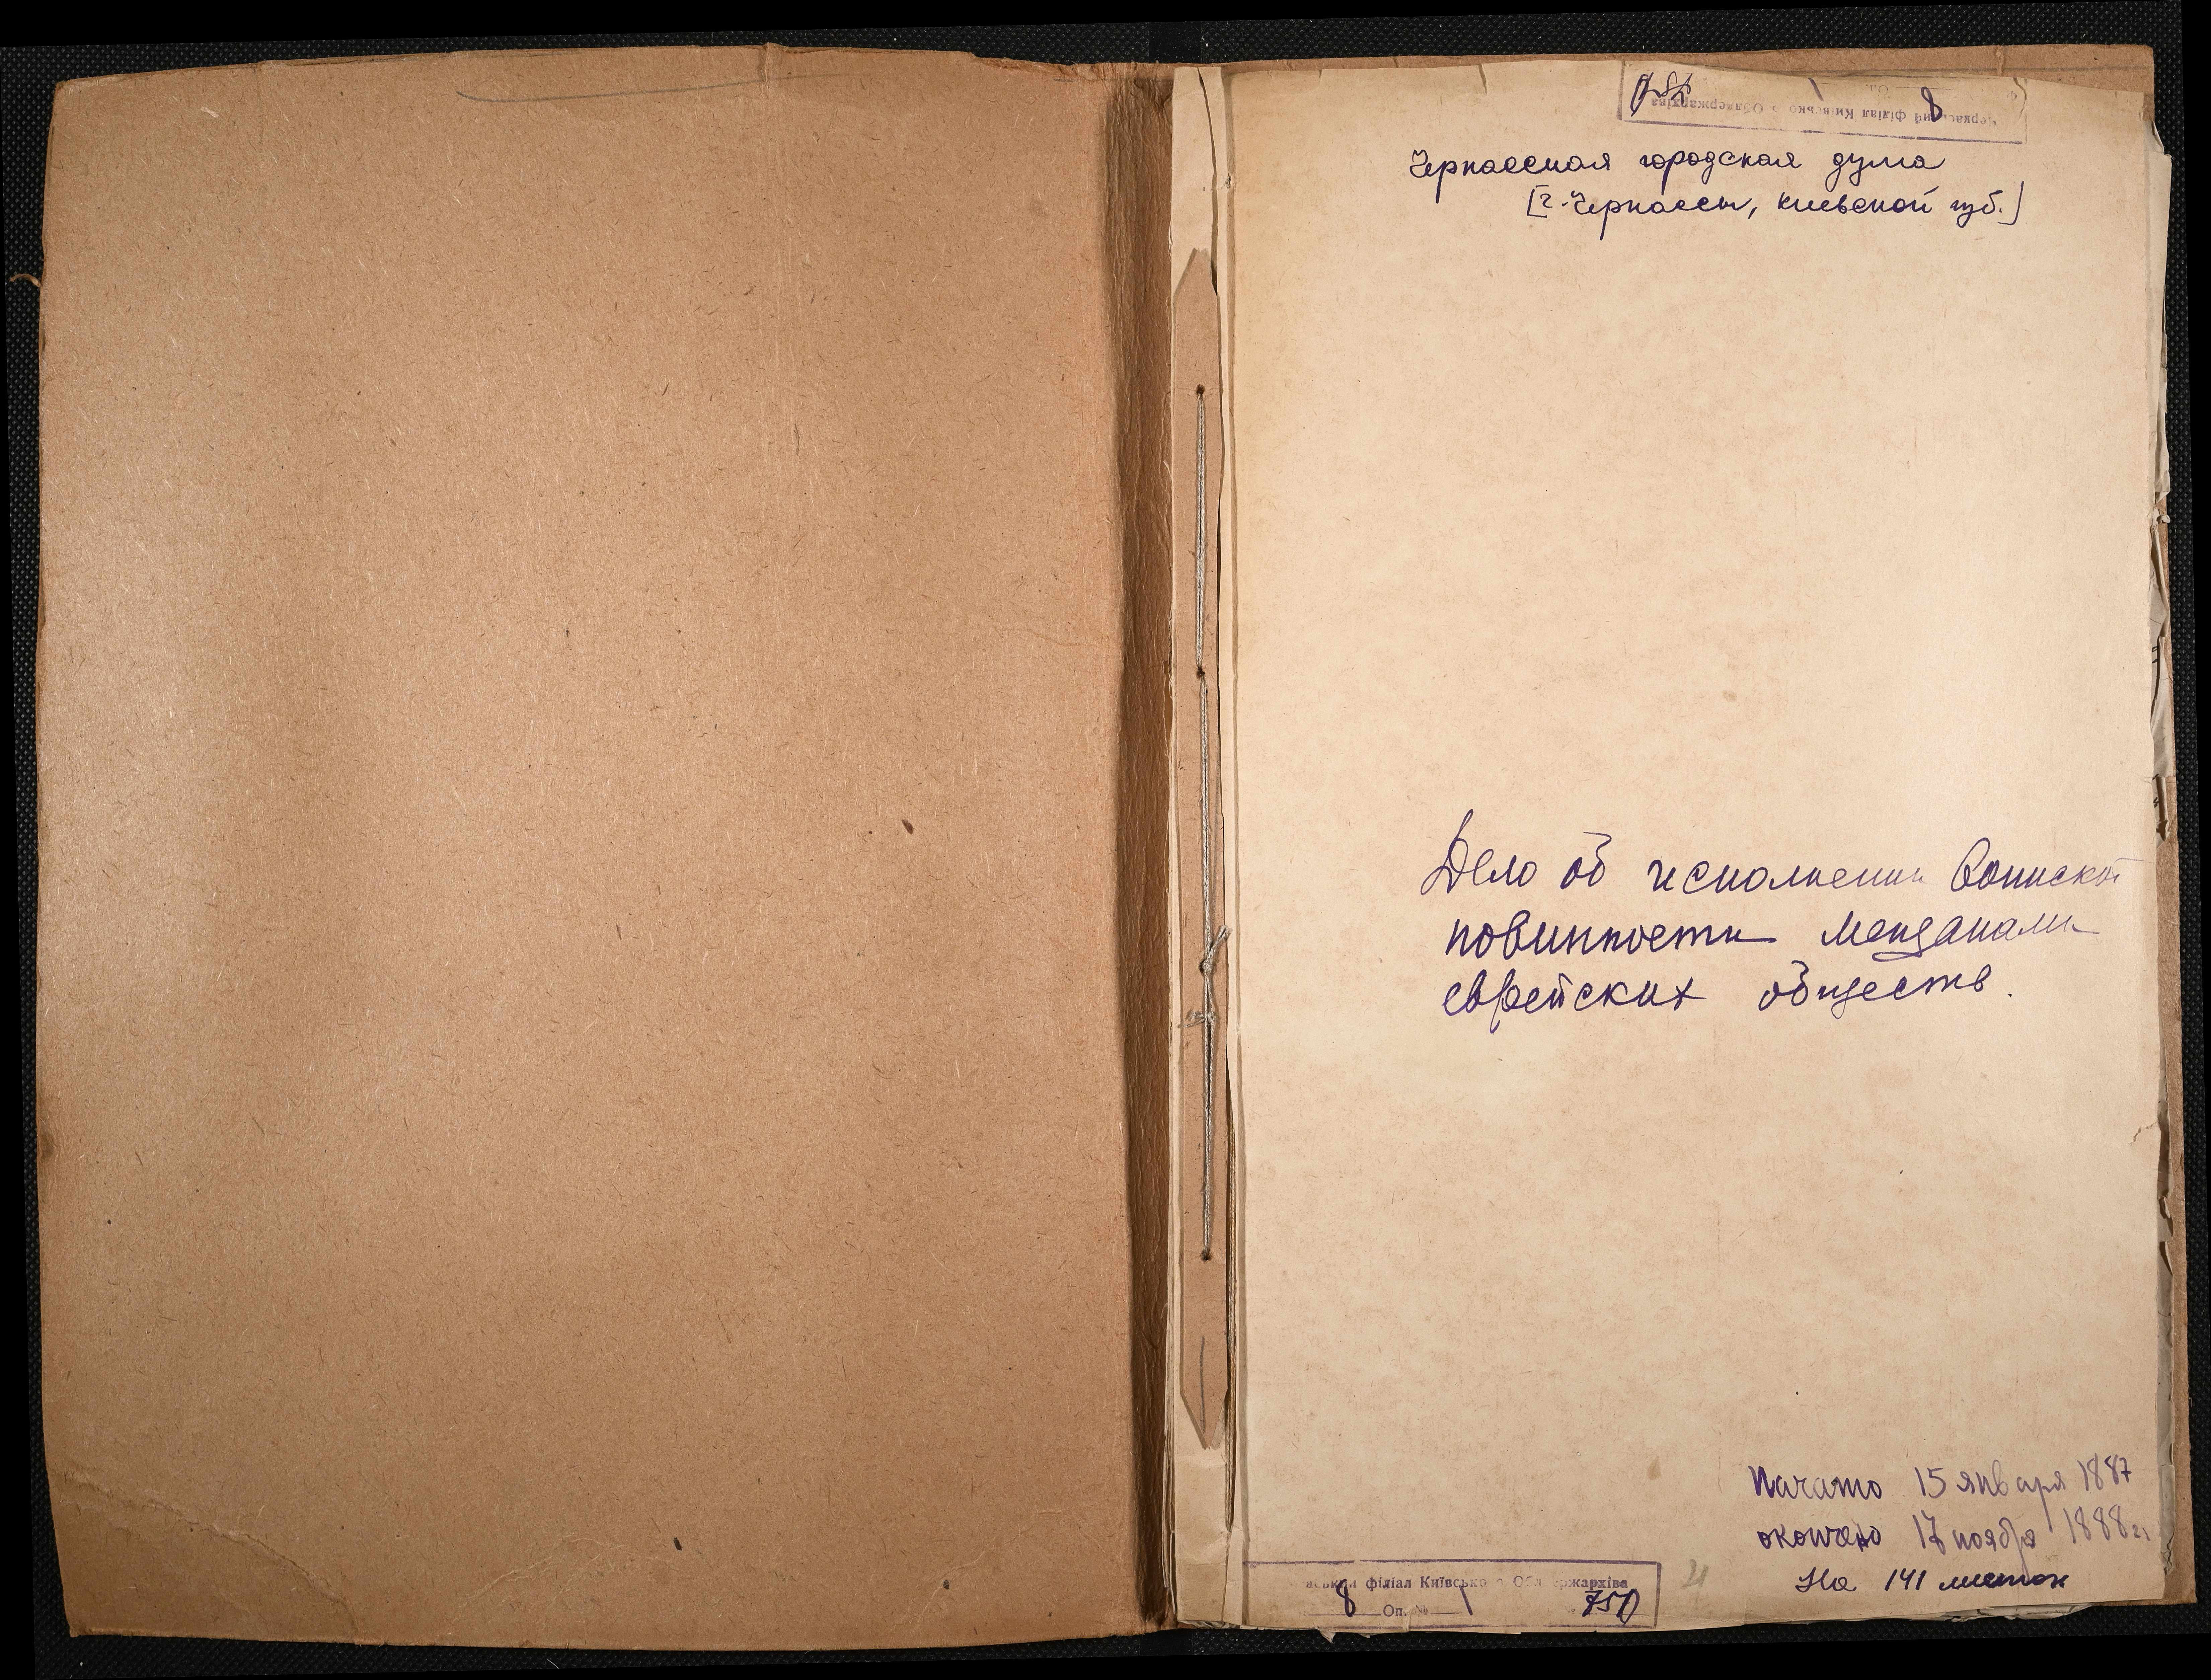 Черкаський філіал Київсько о Облдержархіва
8
Черкасская городская дума
[г. Черкассы, Киевской губ.]
Дело об исполнении воинской
повинности мещанами
еврейских обществ.
Начато 15 января 1887
окончено 17 ноября 1888 г.
На 141 листах
аський філіал Київсько о Обл ержархіва
8 Оп. № 1 750